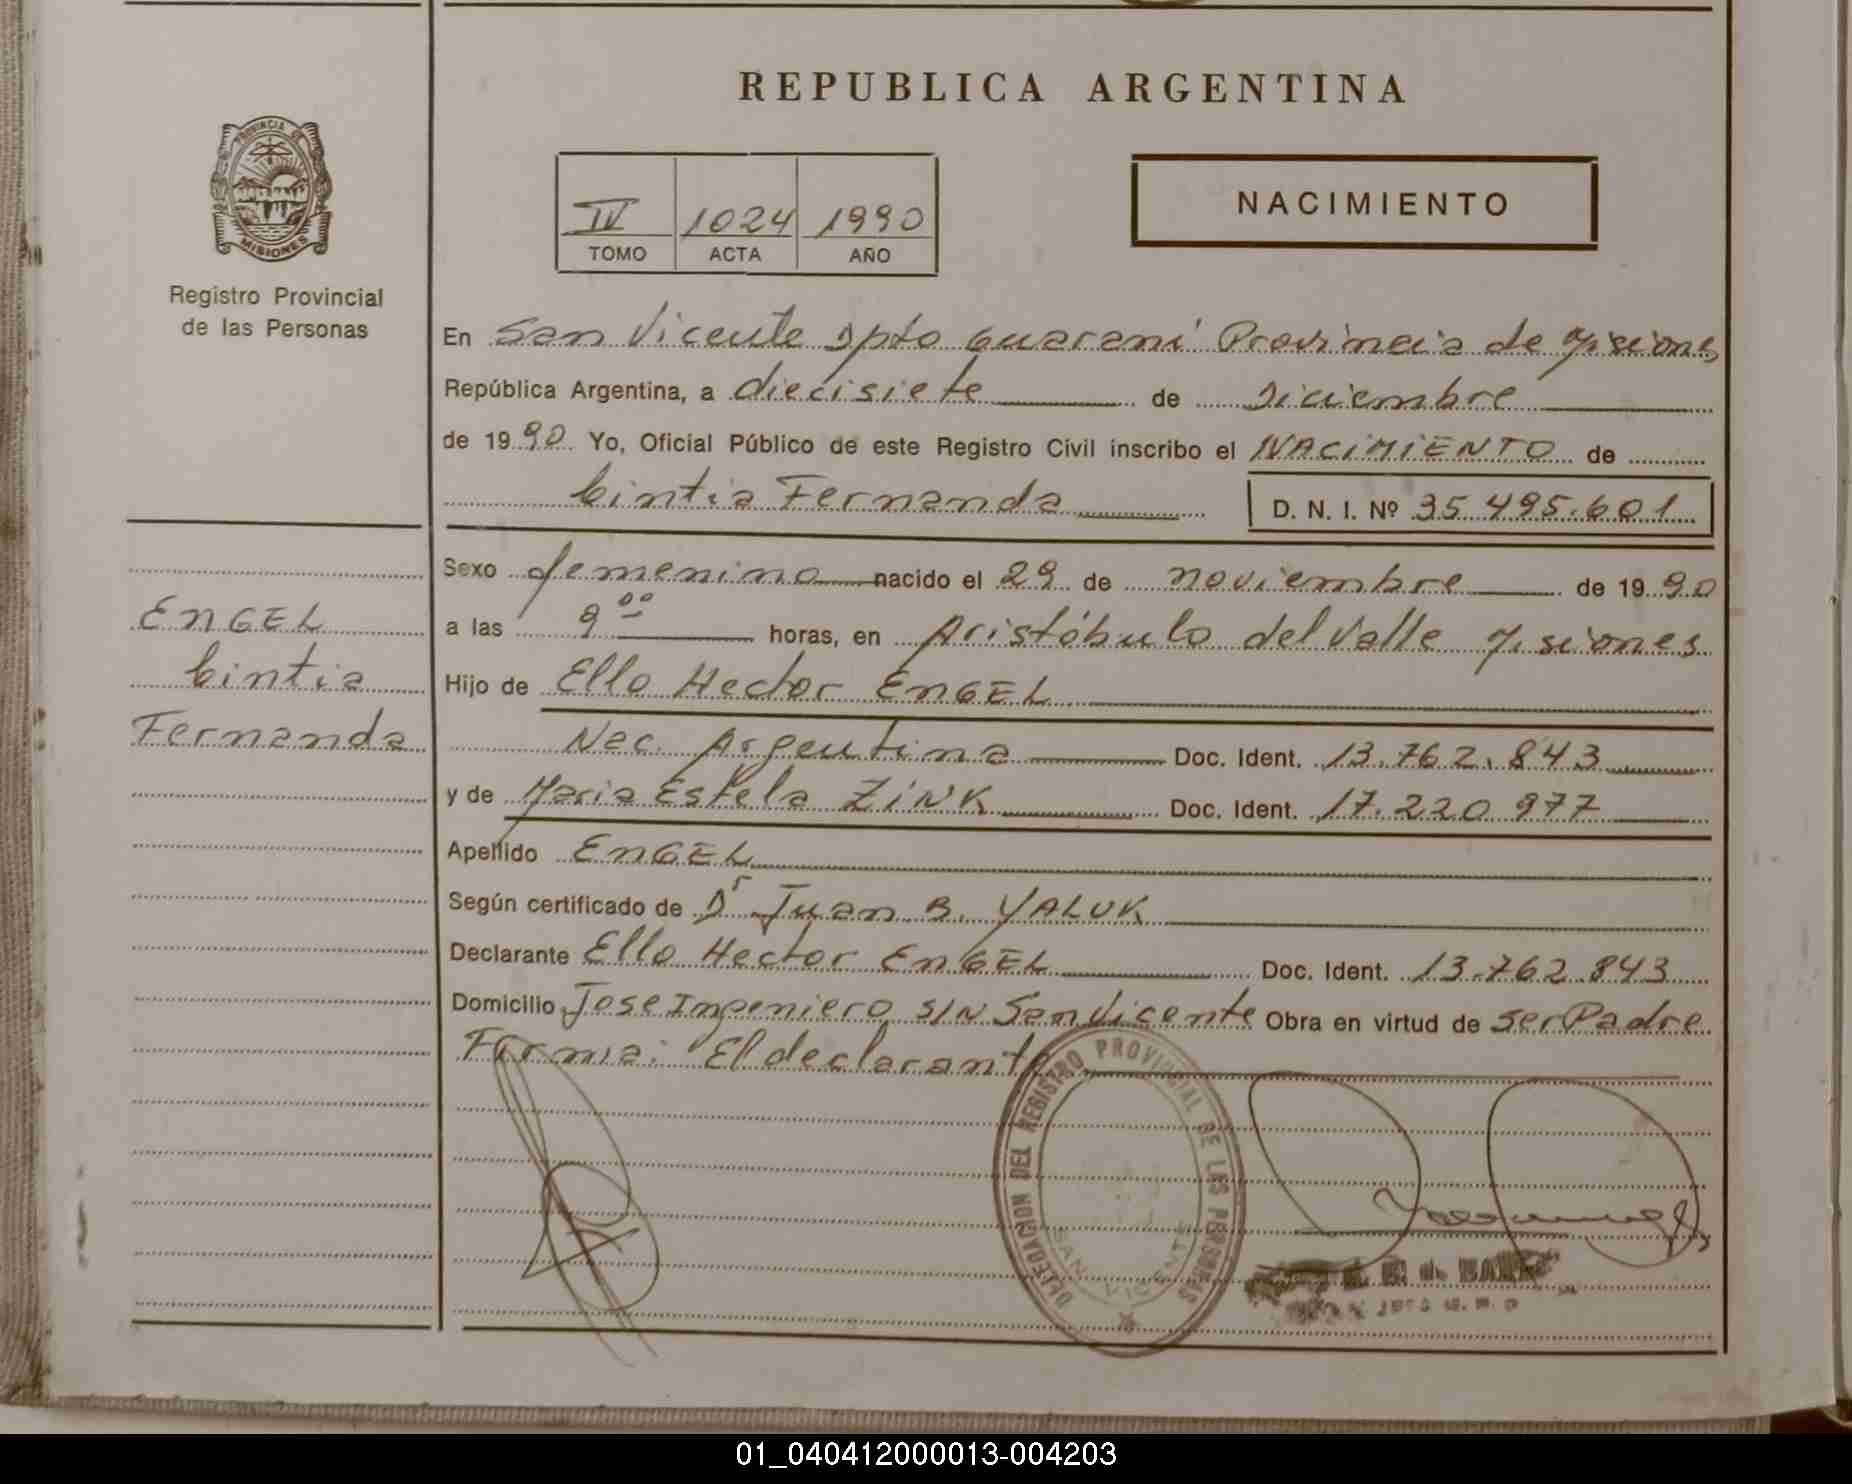 REPUBLICA ARGENTINA
PROVINCIA DE
MISIONES
Registro Provincial
de las Personas
IV 1024 1990
TOMO ACTA AÑO
NACIMIENTO
En San Vicente Dpto Guaraní Provincia de Misiones
República Argentina, a diecisiete de Diciembre
de 1990 Yo, Oficial Público de este Registro Civil inscribo el NACIMIENTO de
Cintia Fernanda D. N. I. Nº 35.495.601
ENGEL
Cintia
Fernanda
Sexo femenino nacido el 29 de noviembre de 1990
a las 9 00 horas, en Aristóbulo del Valle Misiones
Hijo de Ello Hector ENGEL
Nac. Argentina Doc. Ident. 13.762.843
y de Maria Estela ZINK Doc. Ident. 17.220.977
Apellido ENGEL
Según certificado de Dr Juan B. YALUK
Declarante Ello Hector ENGEL Doc. Ident. 13.762.843
Domicilio Jose Ingeniero S/N San Vicente Obra en virtud de ser Padre
Firma: El declarante
DELEGACION DEL REGISTRO PROVINCIAL DE LAS PERSONAS
SAN VICENTE
01_040412000013-004203